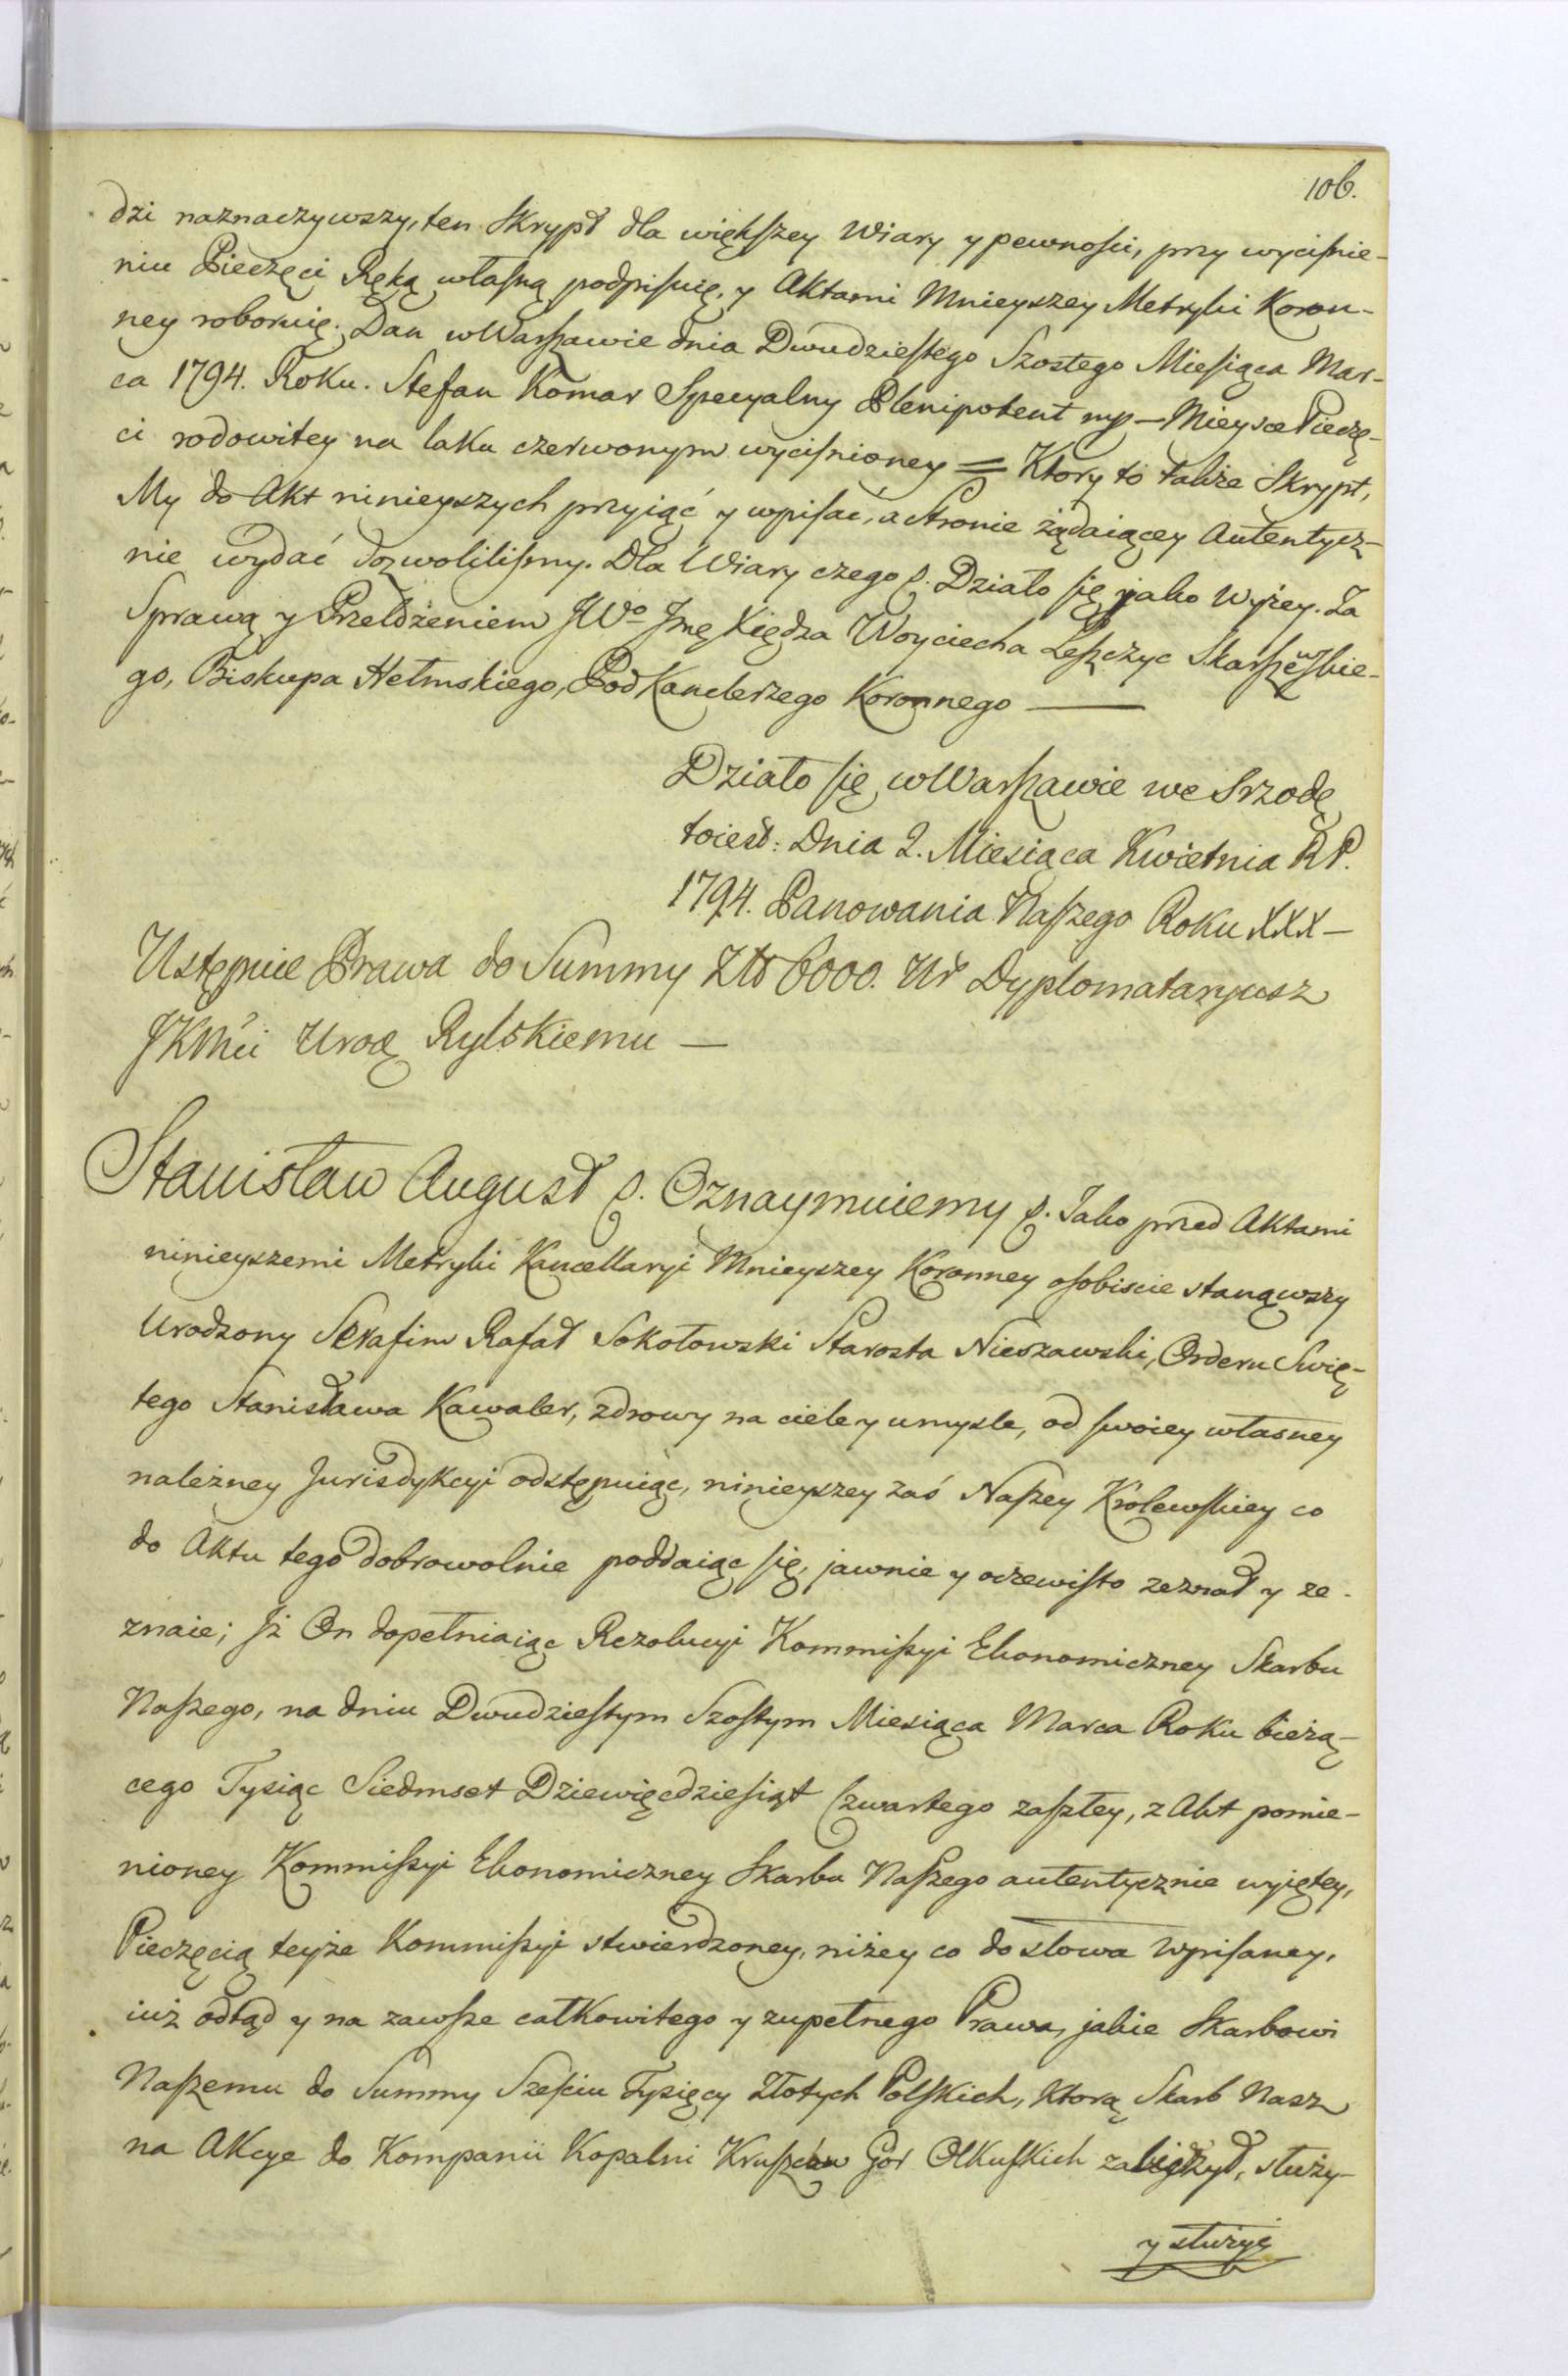 106.
dzi naznaczywszy, ten Skrypt dla więkſzey Wiary y pewnoſci, przy wyciſnie-
niu Pieczęci Ręką właſną podpiſuię, y Aktami Mnieyszey Metryki Koron-
ney roboruię. Dan w Warſzawie dnia Dwudzieſtego Szostego Mieſiąca Mar-
ca 1794. Roku. Stefan Komar Specyalny Plenipotent mp — Mieysce Pieczę-
ci rodowitey na laku czerwonym wyciſnioney = Ktory to także Skrypt,
My do Akt ninieyszych przyiąć y wpiſać, a Stronie żądaiącey Autentycz-
nie wydać dozwoliliſmy. Dla Wiary czego &. Działo ſię jako wyżey. Za
Sprawą y Przełożeniem JWo Jmę Xiędza Woyciecha Leſzczyc Skarſzewſkie-
go, Biskupa Hełmskiego, PodKanclerzego Koronnego —
Działo ſię w Warſzawie we Srzodę
toiest: Dnia 2. Miesiąca Kwietnia RP.
1794. Panowania Naſzego Roku XXX —
Ustępuie Prawa do Summy Zło 6000. Ur Dyplomataryusz
JKMci Urod Rylskiemu —
Stanisław August &. Oznaymuiemy &. Jako przed Aktami
ninieyszemi Metryki Kancellaryi Mnieyszey Koronney oſobiscie stanąwszy
Urodzony Serafin Rafał Sokołowski Starosta Nieszawski, Orderu Swię-
tego Stanisława Kawaler, zdrowy na ciele y umysle, od ſwoiey własney
należney Jurisdykcyi odstępuiąc, ninieyszey zaś Naſzey Krolewſkiey co
do Aktu tego dobrowolnie poddaiąc ſię, jawnie y oczewiſto zeznał y ze-
znaie; Jż On dopełniaiąc Rezolucyi Kommiſsyi Ekonomiczney Skarbu
Naſzego, na dniu Dwudzieſtym Szoſtym Miesiąca Marca Roku bieżą-
cego Tysiąc Siedmset Dziewięcdzieſiąt Czwartego zaſzłey, z Akt pomie-
nioney Kommiſsyi Ekonomiczney Skarbu Naſzego autentycznie wyiętey,
Pieczęcią teyże Kommiſsyi stwierdzoney, niżey co do słowa wpiſaney,
iuż odtąd y na zawſze całkowitego y zupełnego Prawa, jakie Skarbowi
Naſzemu do Summy Szeſciu Tysięcy Złotych Polſkich, Ktorą Skarb Nasz
na Akcye do Kompanii Kopalni Kruſzcow Gor Olkuſkich zaliczył, służy-
y służyć